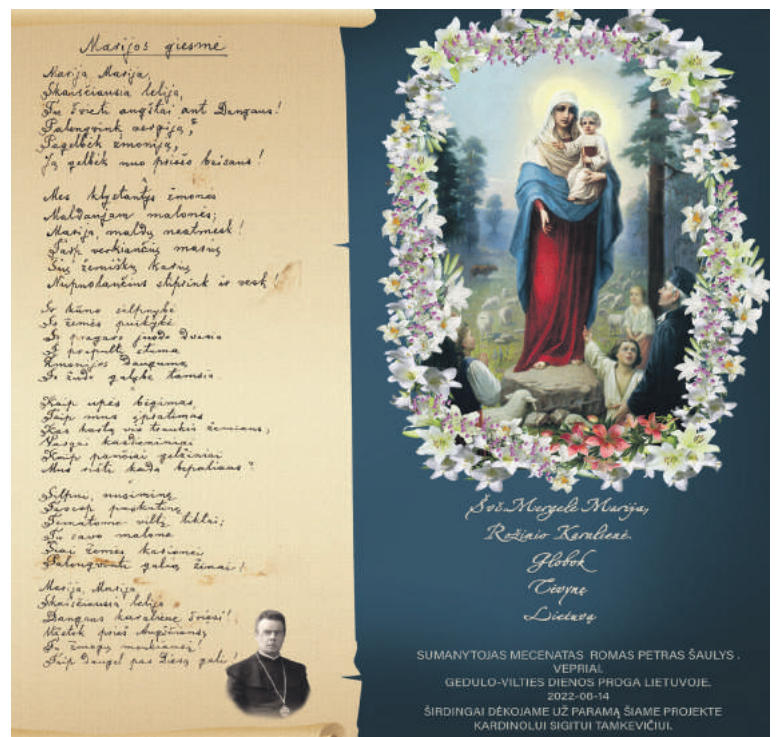 Marijos giesmė
Marija, Marija,
Skaisčiausia lelija,
Tu švieti augštai ant Dangaus!
Palengvink vergiją,
Pagelbėk žmoniją,
Ją gelbėk nuo priešo baisaus!
Mes klystantys žmonės
Maldaujam malonės;
Marija, maldų neatmesk!
Tarp verkiančių marių
Šių žemiškų karių
Nupuolančius stiprink ir vesk!
Ir kūno silpnybė
Ir žemės puikybė
Ir pragaro juoda dvasia
Į prapultį stumia
Žmonijos daugumą
Ir žudo galybė tamsia.
Kaip upės bėgimas,
Taip mus įpratimas
Kas kartą vis traukia žemiaus,
Vargai kasdieniniai
Kaip pančiai geležiniai
Mus rišti kada bepaliaus?
Silpni, nusiminę
Tavęsp paskutinę
Tematome viltį tiktai;
Tu savo malone
Šiai žemės kelionei
Palengvinti galią žinai!
Marija, Marija
Skaisčiausia lelija
Dangaus karaliene šviesi!
Užstok prieš Augščiausį
Tu žmogų menkiausį!
Taip daugel pas Dievą gali!
Švč. Mergelė Marija,
Rožinio Karalienė
Globok
Tėvynę
Lietuvą
SUMANYTOJAS MECENATAS ROMAS PETRAS ŠAULYS .
VEPRIAI.
GEDULO-VILTIES DIENOS PROGA LIETUVOJE.
2022-06-14
ŠIRDINGAI DĖKOJAME UŽ PARAMĄ ŠIAME PROJEKTE
KARDINOLUI SIGITUI TAMKEVIČIUI.